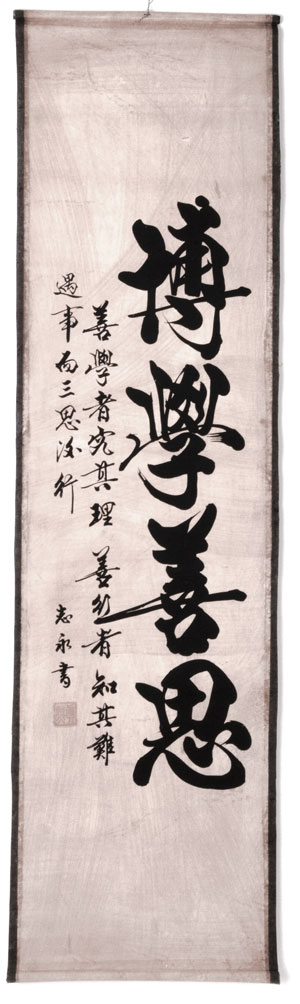 博學善思
善學者究其理 善行者知其難
遇事而三思後行
志永書